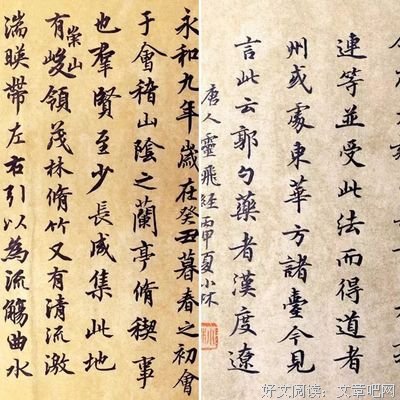 永和九年歲在癸丑暮春之初會
于會稽山陰之蘭亭脩禊事
也羣賢至少長咸集此地
有崇山峻領茂林脩竹又有清流激
湍暎帶左右引以為流觴曲水
連等並受此法而得道者
州或處東華方諸臺今見
言此云郭勺藥者漢度遼
唐人靈飛經丙申夏小
好文阅读：文章吧网